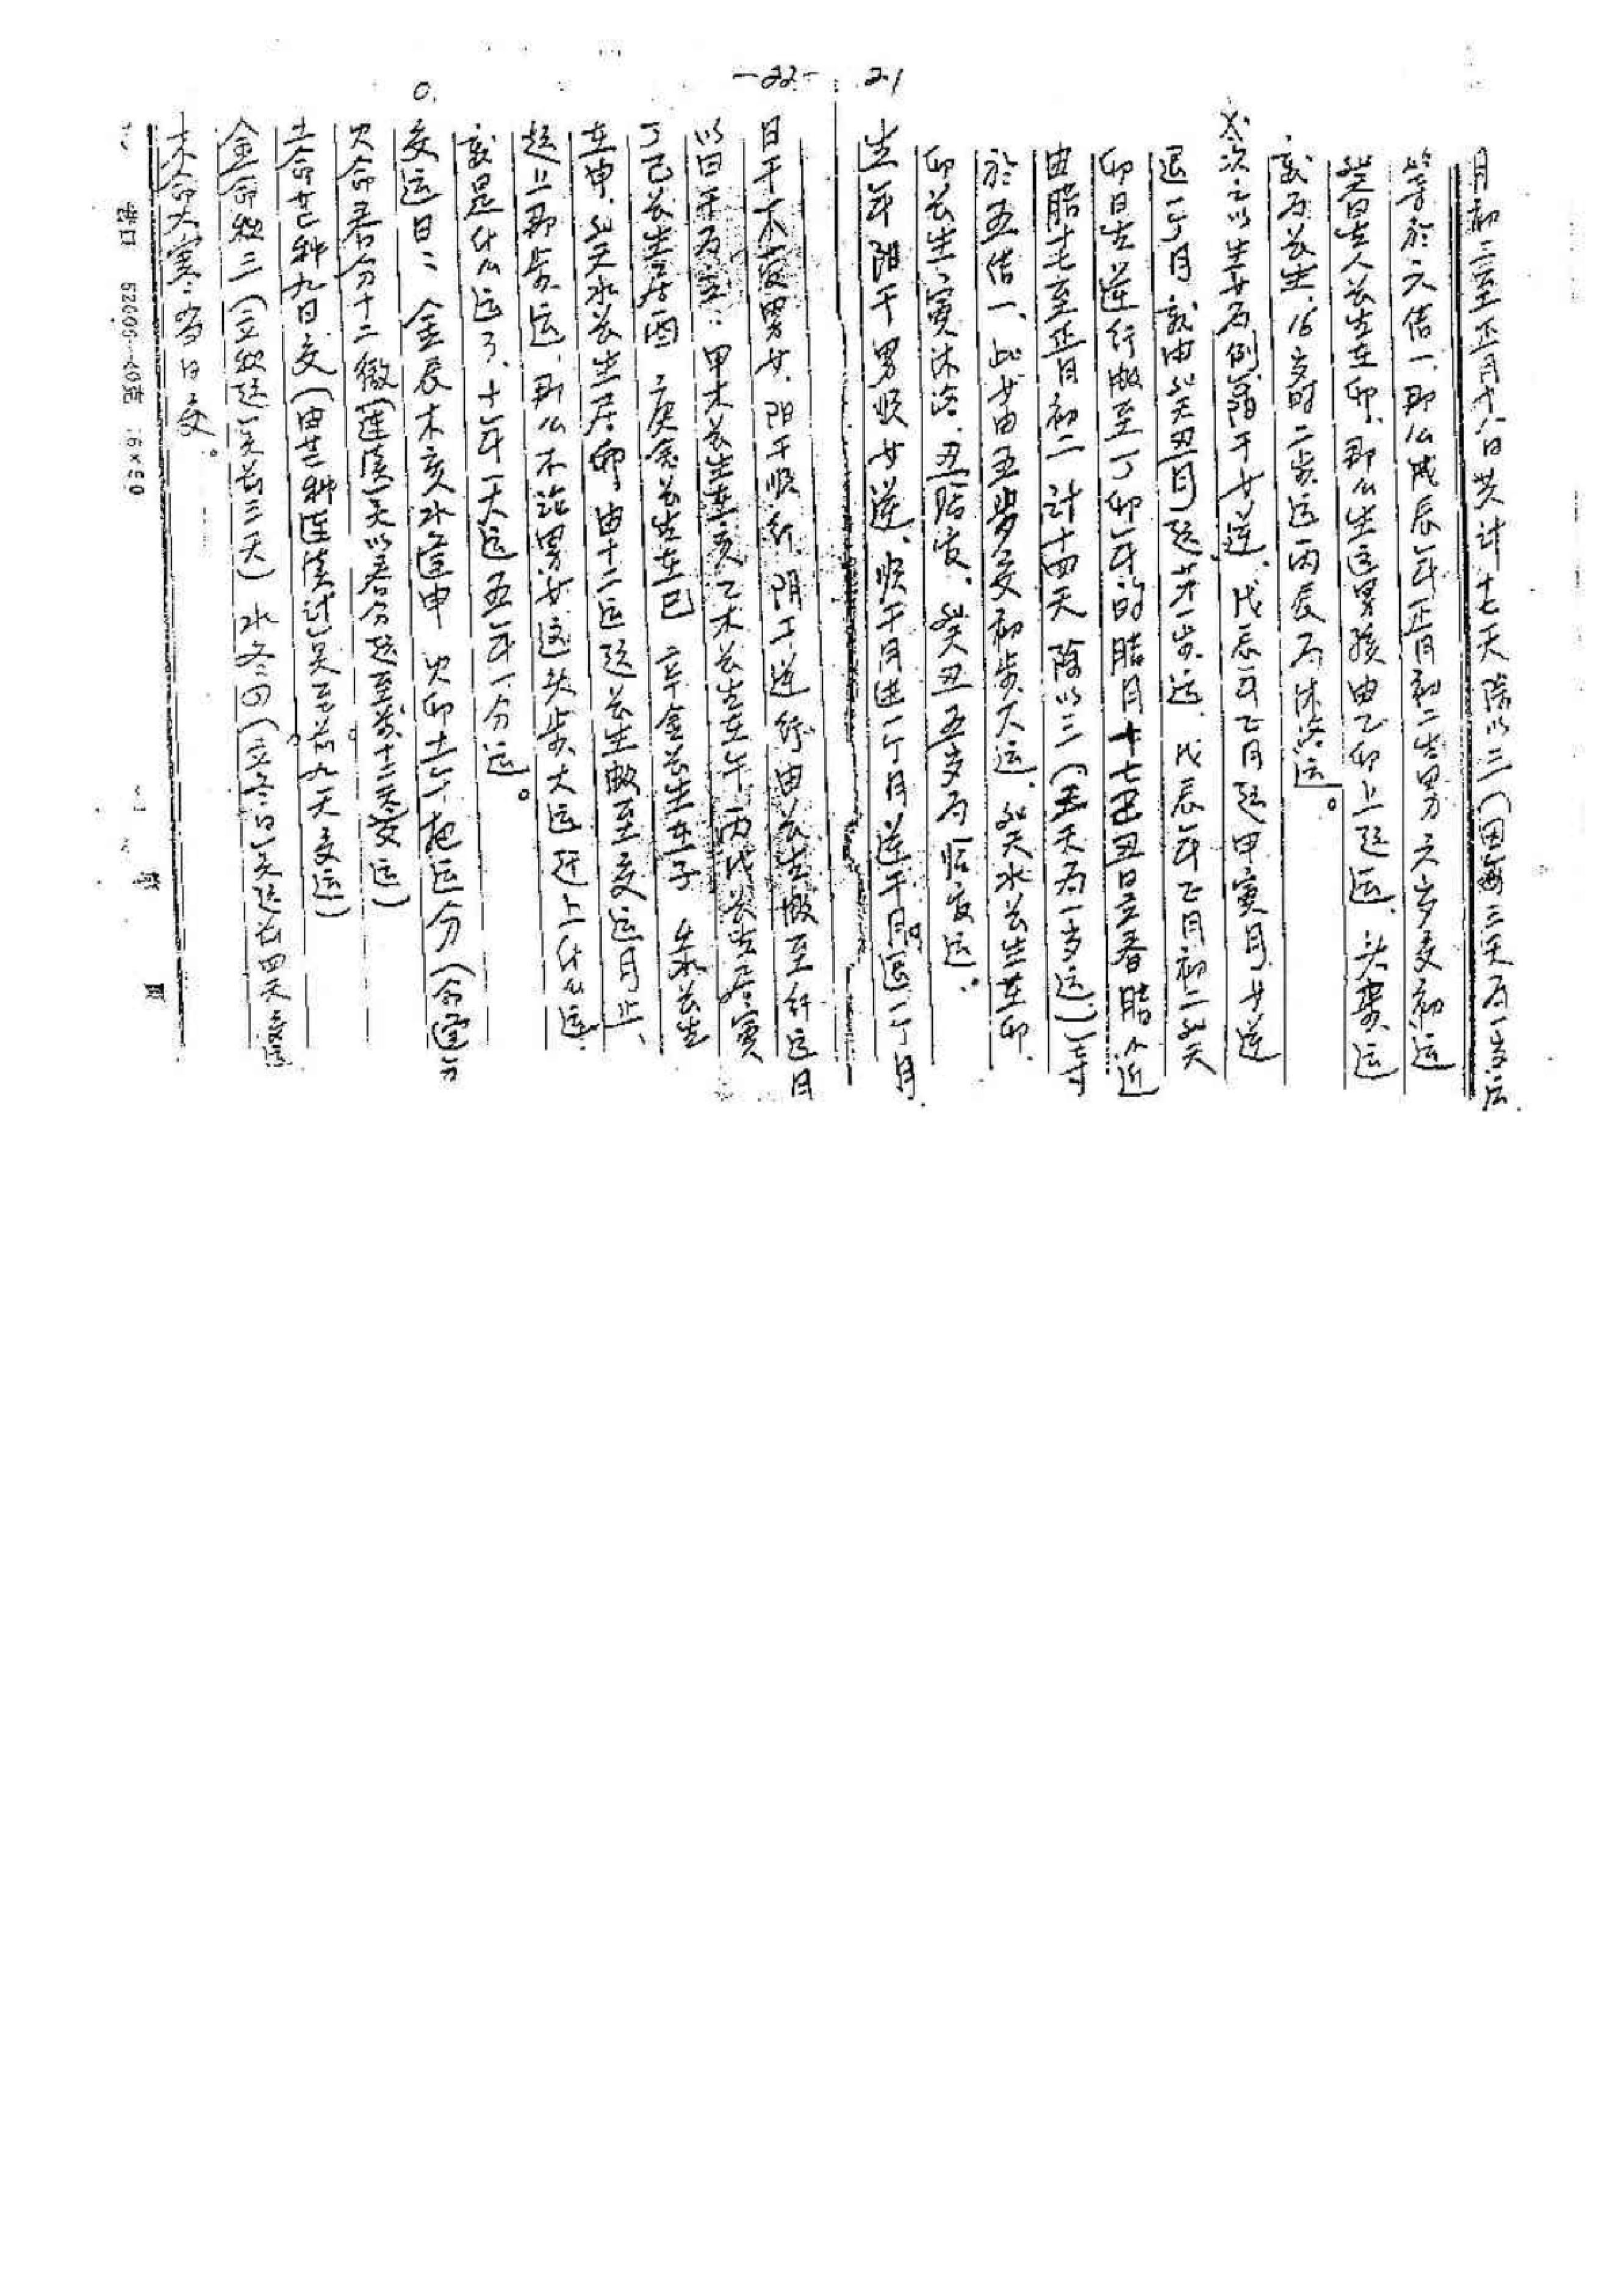 21
月初二至正月十八日共计十七天除以三(因每三天为一岁运
等於六借一、那么戊辰年正月初二生男六岁交初运
癸日生人长生在卯、那么生这男孩由乙卯上起运、头步运
就为长生、16岁时二步运丙辰为沐浴运。
次之以生女为例、阳干女逆、戊辰年正月起甲寅月、女逆
退一个月就由癸丑月起第一步运、戊辰年正月初二癸
卯日生逆行搬至丁卯年的腊月十七丑日立春腊
由腊十七至正月初二计十四天除以三(三天为一岁运)等
於五借一、此女由五岁交初步大运、癸水长生在卯、
卯长生、寅沐浴、丑临官、癸丑五岁为临官运。
生年阳干男顺女逆、顺干月进一个月逆干月退一个月
-22-
日干不管男女、阳干顺行、阴干逆行、由长生搬至行运月
以日干为主:甲木长生在亥乙木长生在午、丙戊长生居寅
丁己长生居酉 庚金长生在巳 辛金长生在子 壬水长生
在申、癸水长生居卯 由十二运起长生搬至交运月止、
赶上那步运、那么不论男女这头步大运赶上什么运
就是什么运了、十年一大运五年一分运。
交运日: 金辰木亥水逢申 火卯土丁把运分(
火命春分十二徵(连清一天以春分起至前十二天交运)
土命芒种九日交(由芒种连清计算至前九天交运)
金命秋三(立秋起一天前三天)水冬四(立冬日一天起前四天交运
木命大寒当日交。
营口 16×50